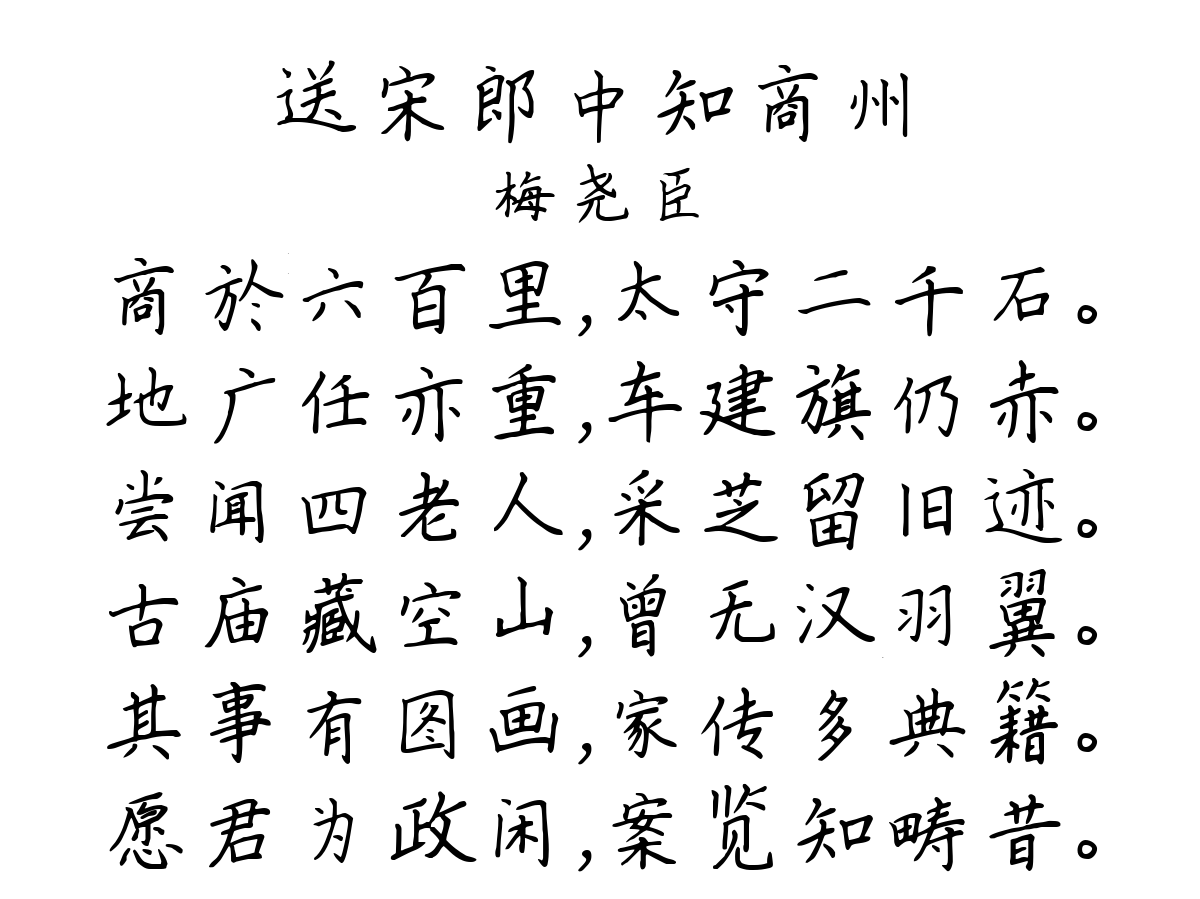 送宋郎中知商州
梅尧臣
商於六百里,太守二千石。
地广任亦重,车建旗仍赤。
尝闻四老人,采芝留旧迹。
古庙藏空山,曾无汉羽翼。
其事有图画,家传多典籍。
愿君为政闲,案览知畴昔。